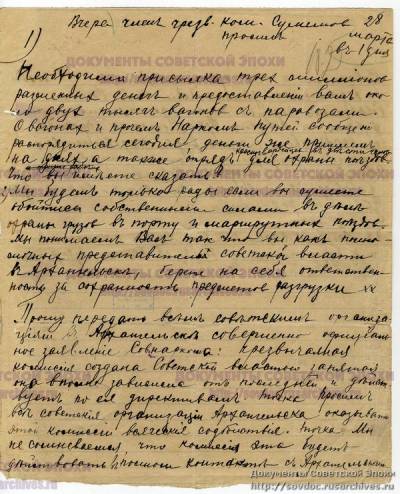 Вчера член чрезв. ком. Сулимов 28
1) просит марта
в 1 дня
ДОКУМЕНТЫ СОВЕТСКОЙ ЭПОХИ
Необходима присылка трех миллионов
разменных денег и предоставления вам око
ло двух тысяч вагонов с паровозами.
О вагонах и прочем Нарком путей сообщен
распорядиться сегодня деньги же пришлем
на днях а также отряд для охраны поездов.
что вы можете сказать?
Мы будем только рады если вы сумеете
обойтись собственными силами в деле
охраны грузов в порту и маршрутных поездов.
Мы понимаем Вас так что вы как полно
мочных представителей советской власти
в Архангельске, берете на себя ответствен
ность за сохранность предметов разгрузки хх
Прошу передать всем советским организа
циям в Архангельске совершенно официаль
ное заявление Совнаркома: чрезвычайная
комиссия создана Советской властью
она вполне зависима от последней и действ
вует по ея директивам точка просим
все советския организации Архангельска оказывать
этой комиссии всяческое содействие. точка Мы
не сомневаемся, что комиссия эта будет
действовать в полном контакте с Архангельским
Документы Советской Эпохи
http://sovdoc.rusarchives.ru